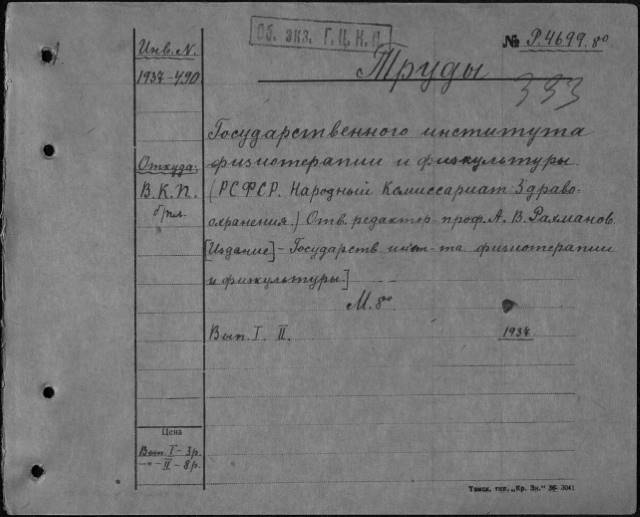 Об. экз. Г.Ц.К.П.
№ Р.4699. 8°
Инв. N.
1937-490
Труды
333
Государственного института
Откуда:
физиотерапии и физкультуры
В. К. П.
б/пл.
(РСФСР. Народный Комиссариат Здраво-
охранения.) Отв. редактор проф. А. В. Рахманов.
[Издание] - Государств. ин-та физиотерапии
и физкультуры.]
М. 8°
Вып. I. II.
1937
Цена
Вып. I - 3 р.
-"- II - 8 р.
Томск, тип. „Кр. Зн." № 3041